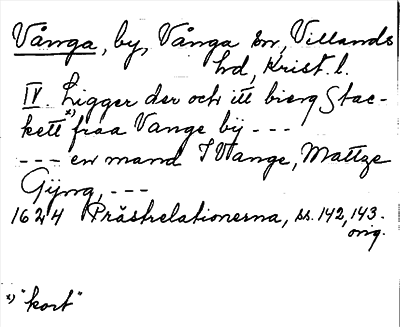 Vånga, by, Vånga sn, Villands
hd, Krist. l.
IV. Ligger der och itt bierg Stac-
kett x) fraa Vange bÿ - - -
- - - en mand I Vange, Mattze
Gÿng, - - -
1624 Prästrelationerna, ss. 142, 143.
orig.
x) "kort"